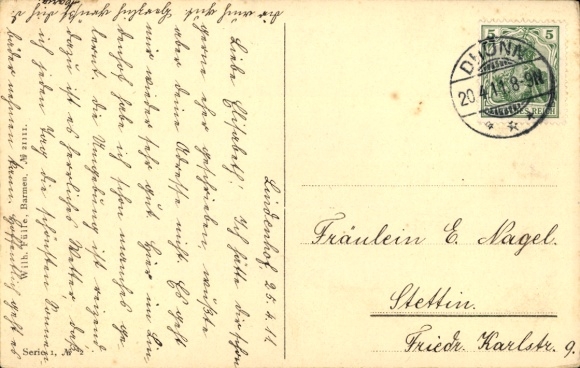 Lindenhof, 25.4.11.
Liebe Elisabeth! Ich hätte dir schon
gerne eher geschrieben, wußte
aber deine Adresse nicht. Es geht
mir wieder sehr gut. Hier im Lin-
denhof habe ich schon manches ge-
lernt. Die Umgebung ist reizend.
Dazu ist es herrliches Wetter, daß
ich jeden Tag die schönsten Sonnen-
bäder nehmen kann. Hoffentlich geht es
dir auch gut. Herzlich grüßt dich d.
Wilh. Fülle, Barmen, № 21111.
Serie 1, №
5 5
REICH
DHÜNN
20.4.11.8-9N
Fräulein E. Nagel.
Stettin.
Friedr. Karlstr. 9.